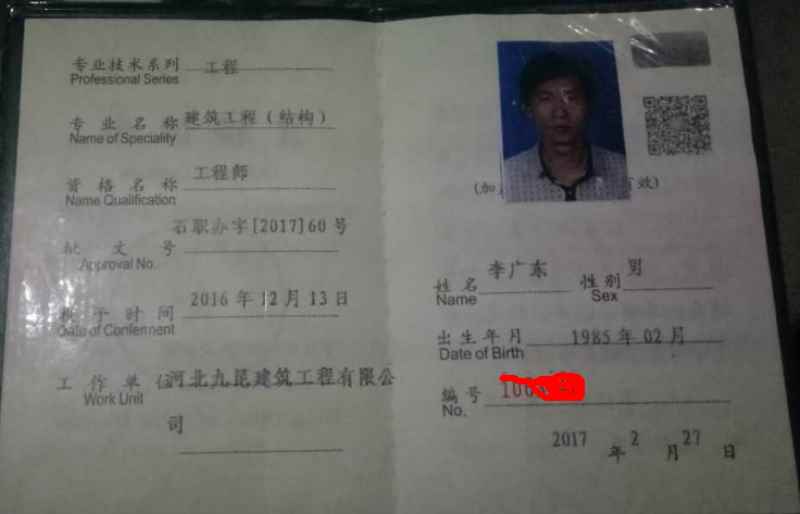 专业技术系列 工程
Professional Series
专业名称 建筑工程(结构)
Name of Speciality
资格名称 工程师
Name Qualification
石职办字[2017]60号
批文号
Approval No.
授予时间 2016年12月13日
Date of Conferment
工作单位 河北九昆建筑工程有限公
Work Unit
司
(加
有效)
姓名 李广东 性别 男
Name Sex
出生年月 1985年02月
Date of Birth
编号
No.
2017年2月27日